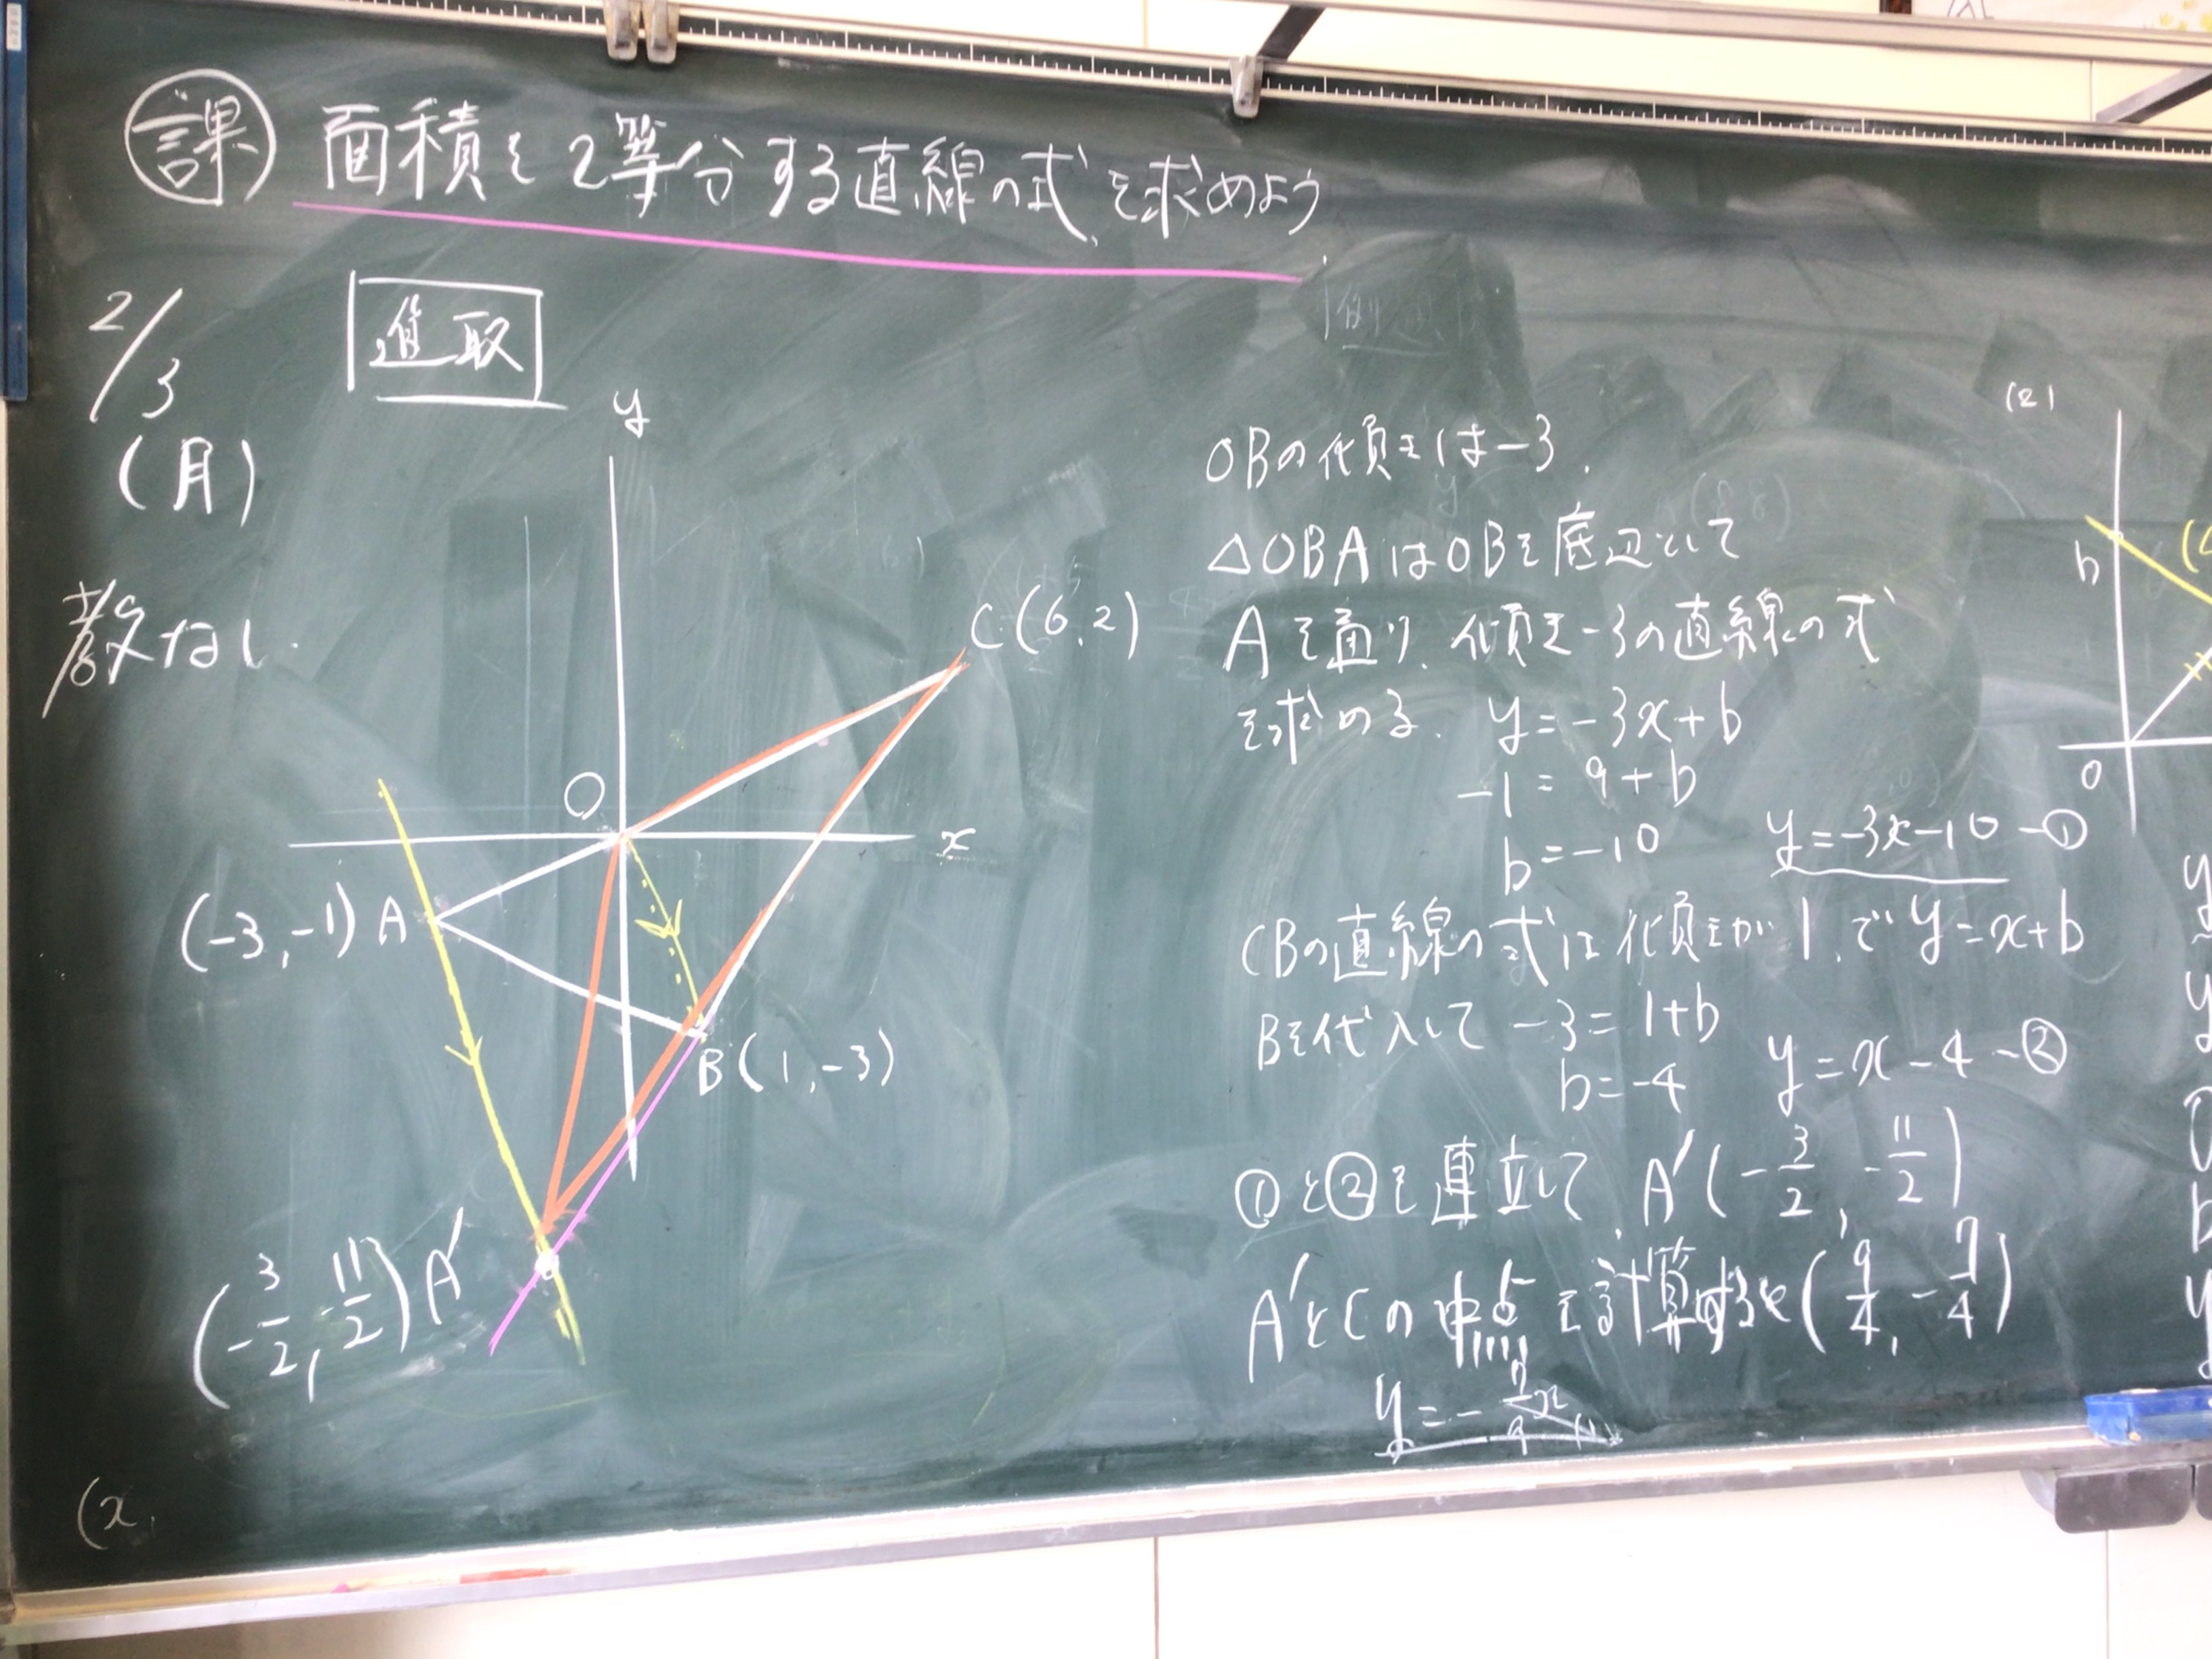 課 面積を2等分する直線の式を求めよう
2/3
(月)
進取
教なし
y
C(6,2)
O
x
(-3,-1)A
B(1,-3)
(-3/2,-11/2)A′
(x,
OBの傾きは-3.
△OBAはOBを底辺として
Aを通り、傾き-3の直線の式
を求める. y=-3x+b
-1=9+b
b=-10 y=-3x-10-①
CBの直線の式は傾きが1.でy=x+b
Bを代入して -3=1+b
b=-4 y=x-4-②
①と②を連立して、A′(-3/2,-11/2)
A′とCの中点を計算すると(9/4,-7/4)
y=-7/9x
(2)
b
O